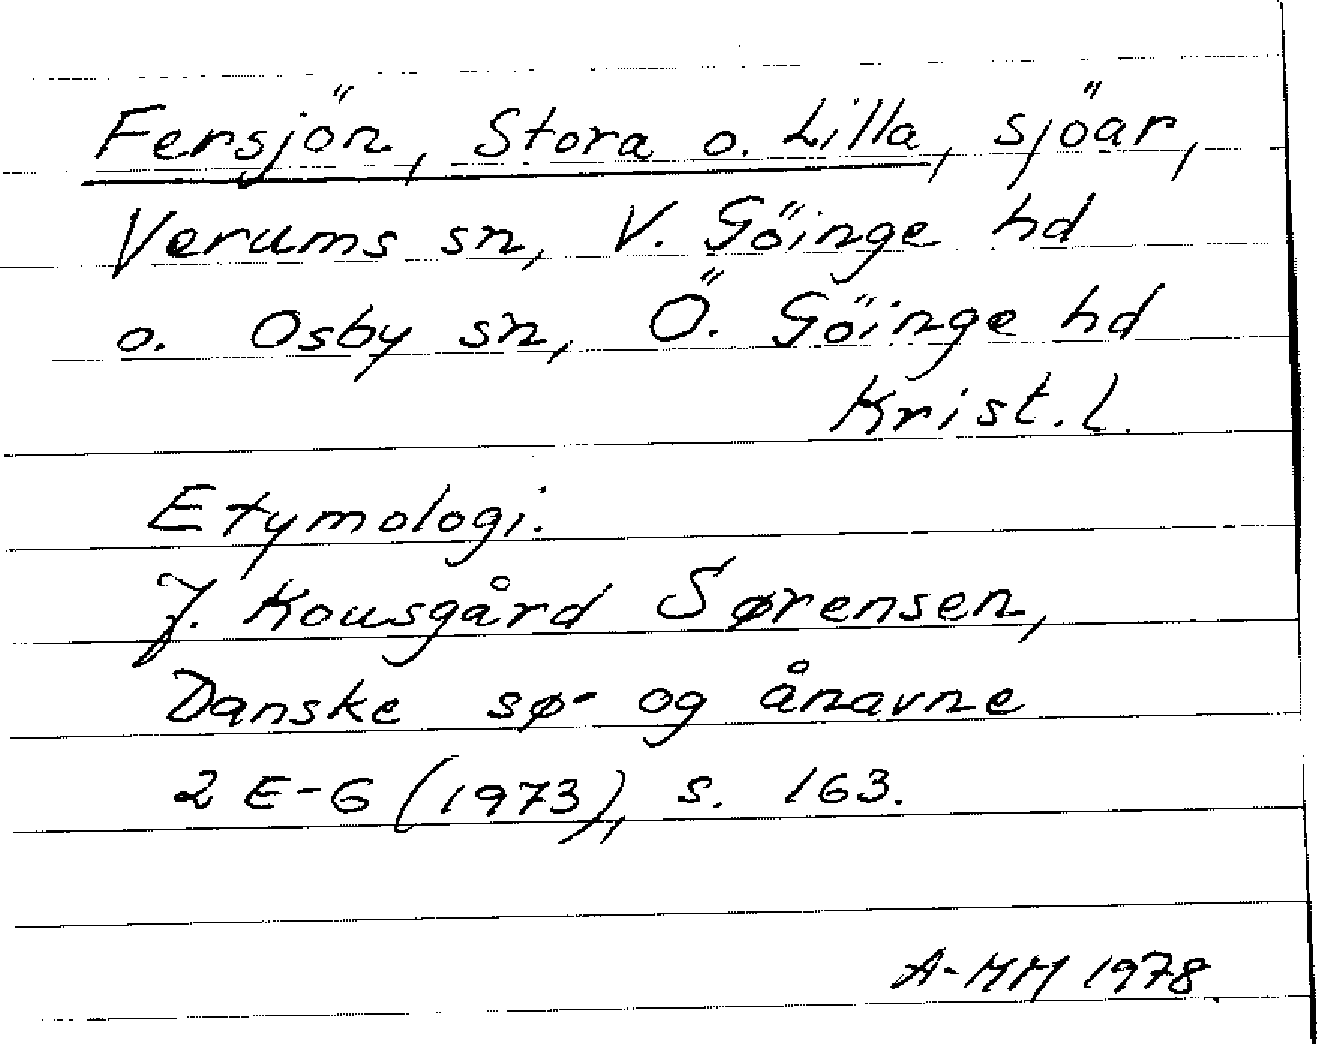 Fersjön, Stora o. Lilla, sjöar,
Verums sn, V. Göinge hd
o. Osby sn, Ö. Göinge hd
Krist. l.
Etymologi.
J. Kousgård Sørensen,
Danske sø- og ånavne
2 E-G (1973), s. 163.
A-MM 1978.